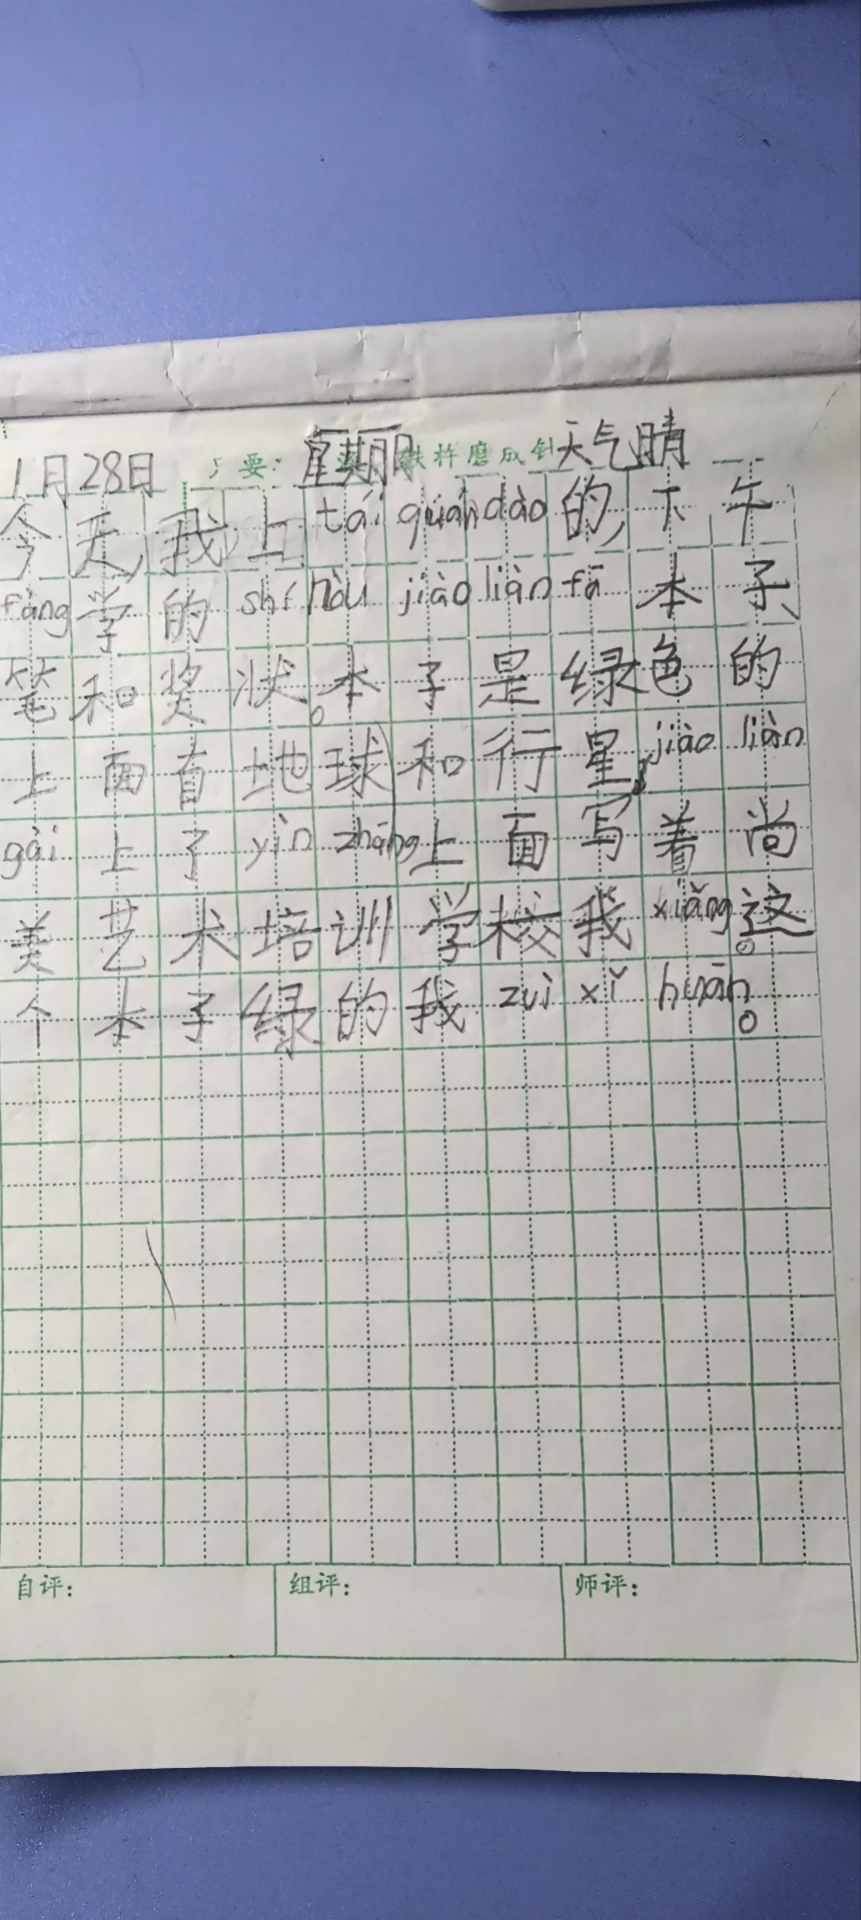 1月28日 要: 星期 铁杵磨成针 天气晴
今天,我上tái quán dào的,下午
fàng学的shí hòu jiào liàn fā本子、
笔和奖状。本子是绿色的
上面有地球和行星,jiào liàn
gài上了yìn zhāng上面写着尚
美艺术培训学校我xiǎng。这
个本子绿的我zuì xǐ huān。
自评: 组评: 师评: